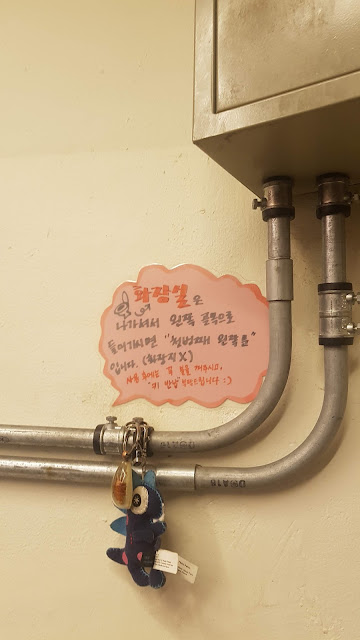 화장실은
나가셔서 왼쪽 골목으로
들어가시면 "첫번째 왼쪽
입니다. (화장지X)
사용 후에는 꼭 불을 꺼주시고,
"키 반납" 부탁드립니다 :)